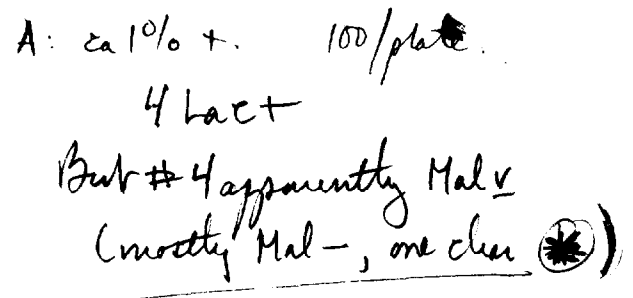 A: ca 1% +. 100/plate.
4 Lac+
But #4 apparently Mal v
(mostly Mal –, one clear )